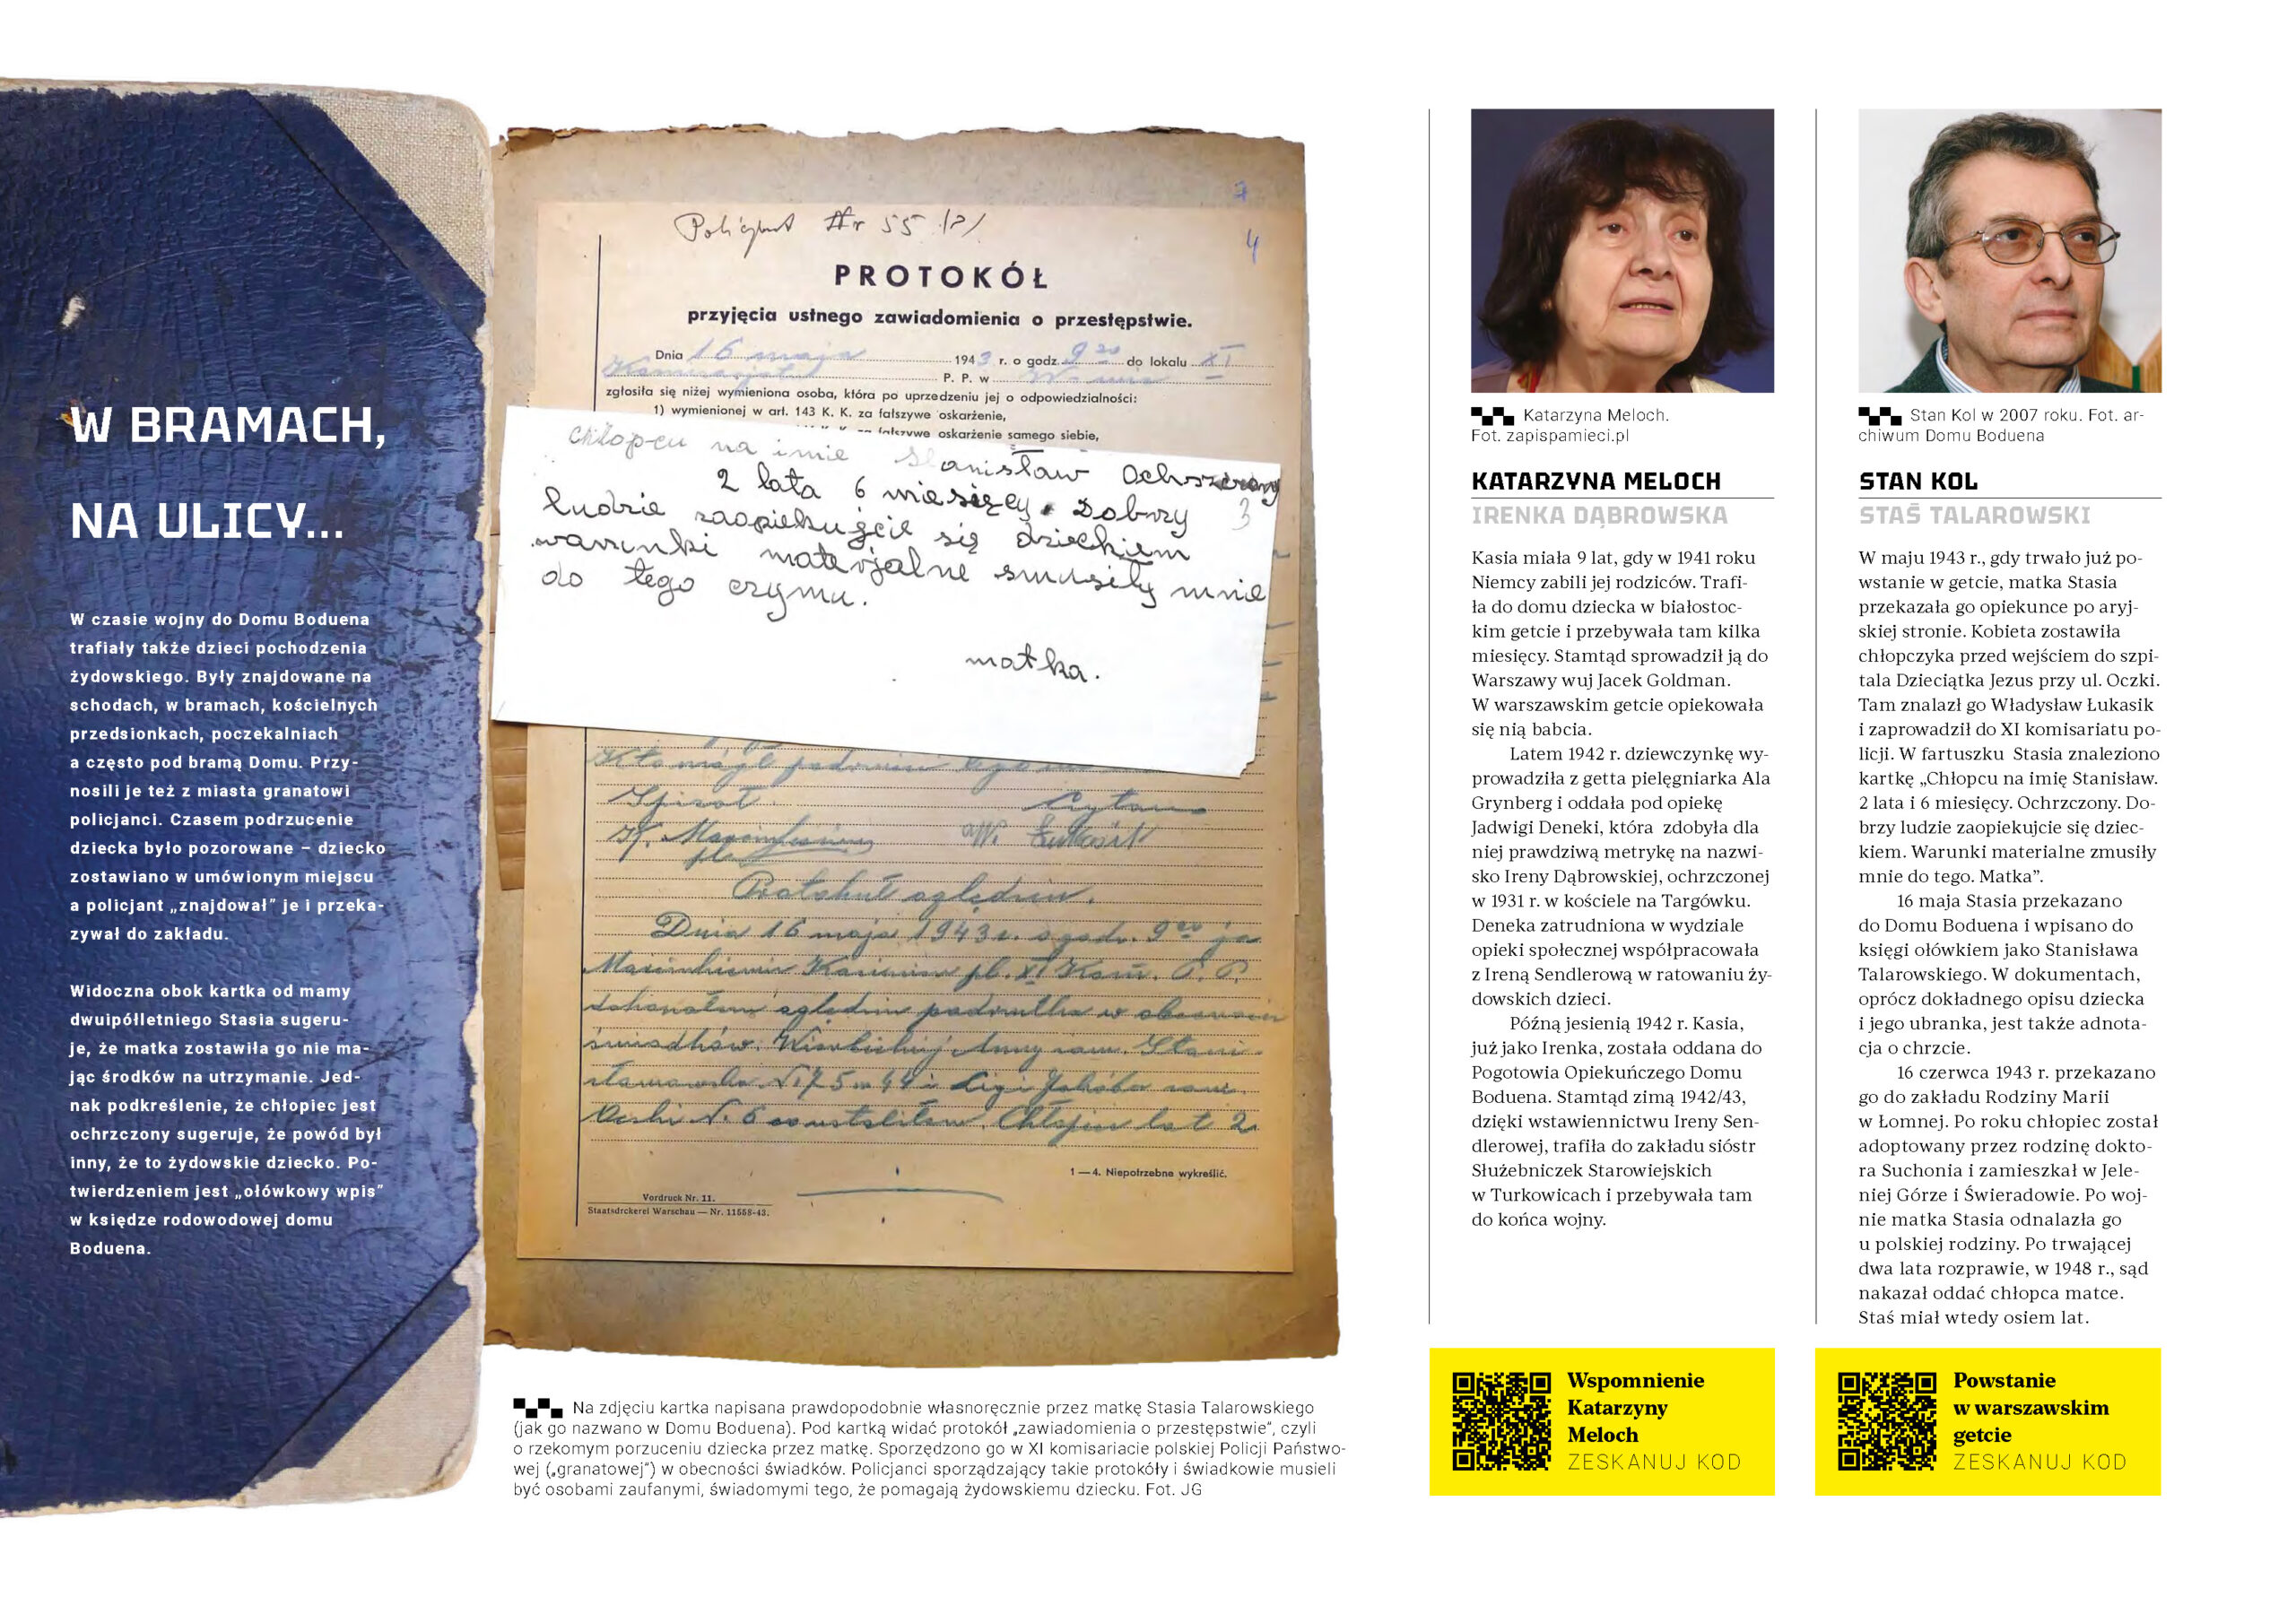 W BRAMACH,
NA ULICY...
W czasie wojny do Domu Boduena
trafiały także dzieci pochodzenia
żydowskiego. Były znajdowane na
schodach, w bramach, kościelnych
przedsionkach, poczekalniach
a często pod bramą Domu. Przy-
nosili je też z miasta granatowi
policjanci. Czasem podrzucenie
dziecka było pozorowane – dziecko
zostawiano w umówionym miejscu
a policjant „znajdował” je i przeka-
zywał do zakładu.
Widoczna obok kartka od mamy
dwuipółletniego Stasia sugeru-
je, że matka zostawiła go nie ma-
jąc środków na utrzymanie. Jed-
nak podkreślenie, że chłopiec jest
ochrzczony sugeruje, że powód był
inny, że to żydowskie dziecko. Po-
twierdzeniem jest „ołówkowy wpis”
w księdze rodowodowej domu
Boduena.
7
4
Nr 55
PROTOKÓŁ
przyjęcia ustnego zawiadomienia o przestępstwie.
Dnia 16 maja 1943 r. o godz. 9 20 do lokalu XI
P. P. w
zgłosiła się niżej wymieniona osoba, która po uprzedzeniu jej o odpowiedzialności:
1) wymienionej w art. 143 K. K. za fałszywe oskarżenie,
K. K. za fałszywe oskarżenie samego siebie,
chłopcu na imie Stanisław Ochszczony
2 lata 6 miesięcy. Dobrzy 3
ludzie zaopiekujcie się dzieckiem
warunki materjalne smusiły mnie
do tego czymu.
matka.
Spisał. Czytano
Protokuł oględzin.
Dnia 16 maja 1943 r. o godz. 9 20 ja
Kazimierz XI Kom. P. P.
dokonałem oględzin podrzutka w obecności
świadków: Anny zam.
Nr 75 m 44 i Jakóba zam.
Oczki Nr. 6 Chłopiec lat 2
1 — 4. Niepotrzebne wykreślić.
Vordruck Nr. 11.
Staatsdrckerei Warschau — Nr. 11558-43.
Na zdjęciu kartka napisana prawdopodobnie własnoręcznie przez matkę Stasia Talarowskiego
(jak go nazwano w Domu Boduena). Pod kartką widać protokół „zawiadomienia o przestępstwie”, czyli
o rzekomym porzuceniu dziecka przez matkę. Sporzędzono go w XI komisariacie polskiej Policji Państwo-
wej („granatowej”) w obecności świadków. Policjanci sporządzający takie protokóły i świadkowie musieli
być osobami zaufanymi, świadomymi tego, że pomagają żydowskiemu dziecku. Fot. JG
Katarzyna Meloch.
Fot. zapispamieci.pl
KATARZYNA MELOCH
IRENKA DĄBROWSKA
Kasia miała 9 lat, gdy w 1941 roku
Niemcy zabili jej rodziców. Trafi-
ła do domu dziecka w białostoc-
kim getcie i przebywała tam kilka
miesięcy. Stamtąd sprowadził ją do
Warszawy wuj Jacek Goldman.
W warszawskim getcie opiekowała
się nią babcia.
Latem 1942 r. dziewczynkę wy-
prowadziła z getta pielęgniarka Ala
Grynberg i oddała pod opiekę
Jadwigi Deneki, która zdobyła dla
niej prawdziwą metrykę na nazwi-
sko Ireny Dąbrowskiej, ochrzczonej
w 1931 r. w kościele na Targówku.
Deneka zatrudniona w wydziale
opieki społecznej współpracowała
z Ireną Sendlerową w ratowaniu ży-
dowskich dzieci.
Późną jesienią 1942 r. Kasia,
już jako Irenka, została oddana do
Pogotowia Opiekuńczego Domu
Boduena. Stamtąd zimą 1942/43,
dzięki wstawiennictwu Ireny Sen-
dlerowej, trafiła do zakładu sióstr
Służebniczek Starowiejskich
w Turkowicach i przebywała tam
do końca wojny.
Wspomnienie
Katarzyny
Meloch
ZESKANUJ KOD
Stan Kol w 2007 roku. Fot. ar-
chiwum Domu Boduena
STAN KOL
STAŚ TALAROWSKI
W maju 1943 r., gdy trwało już po-
wstanie w getcie, matka Stasia
przekazała go opiekunce po aryj-
skiej stronie. Kobieta zostawiła
chłopczyka przed wejściem do szpi-
tala Dzieciątka Jezus przy ul. Oczki.
Tam znalazł go Władysław Łukasik
i zaprowadził do XI komisariatu po-
licji. W fartuszku Stasia znaleziono
kartkę „Chłopcu na imię Stanisław.
2 lata i 6 miesięcy. Ochrzczony. Do-
brzy ludzie zaopiekujcie się dziec-
kiem. Warunki materialne zmusiły
mnie do tego. Matka”.
16 maja Stasia przekazano
do Domu Boduena i wpisano do
księgi ołówkiem jako Stanisława
Talarowskiego. W dokumentach,
oprócz dokładnego opisu dziecka
i jego ubranka, jest także adnota-
cja o chrzcie.
16 czerwca 1943 r. przekazano
go do zakładu Rodziny Marii
w Łomnej. Po roku chłopiec został
adoptowany przez rodzinę dokto-
ra Suchonia i zamieszkał w Jele-
niej Górze i Świeradowie. Po woj-
nie matka Stasia odnalazła go
u polskiej rodziny. Po trwającej
dwa lata rozprawie, w 1948 r., sąd
nakazał oddać chłopca matce.
Staś miał wtedy osiem lat.
Powstanie
w warszawskim
getcie
ZESKANUJ KOD